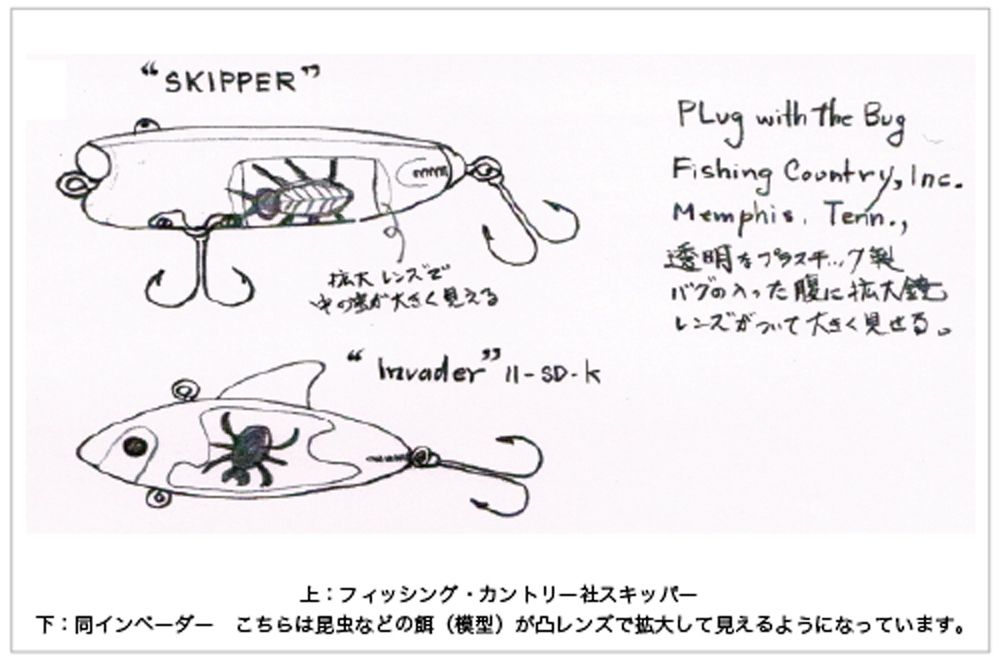 "SKIPPER"
PLug with the Bug
Fishing Country, Inc.
Memphis. Tenn.,
透明なプラスチック製
バグの入った腹に拡大鏡
レンズがついて大きく見せる。
拡大レンズで
中の虫が大きく見える
"Invader" 11-SD-K
上：フィッシング・カントリー社スキッパー
下：同インベーダー　こちらは昆虫などの餌（模型）が凸レンズで拡大して見えるようになっています。